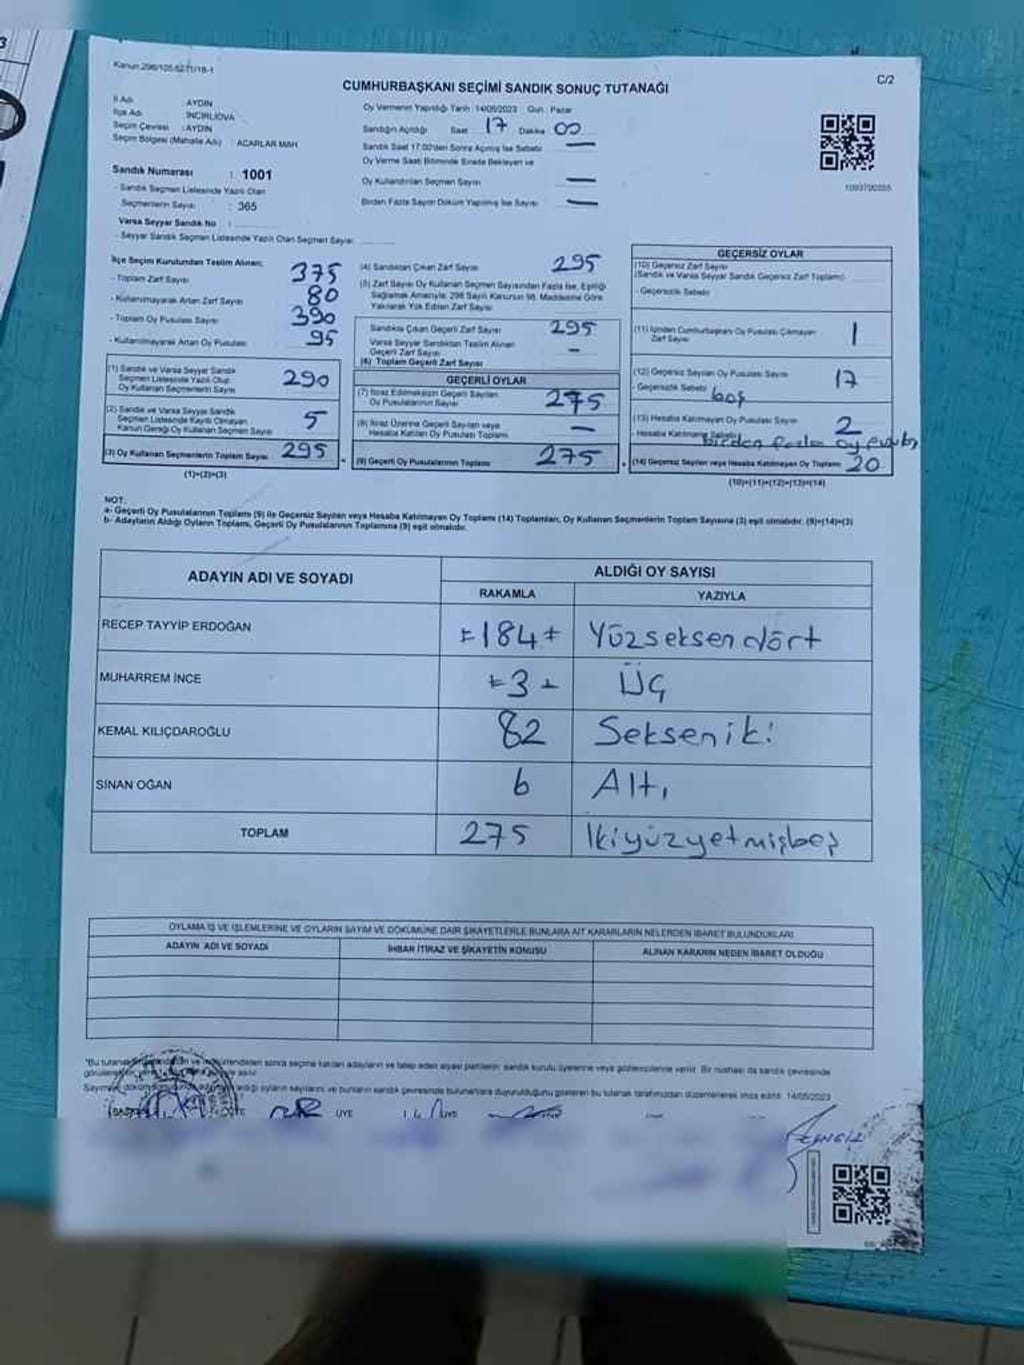 3
Kanun:298/105.6271/18-1
C/2
CUMHURBAŞKANI SEÇİMİ SANDIK SONUÇ TUTANAĞI
İl Adı : AYDIN
İlçe Adı : İNCİRLİOVA
Seçim Çevresi : AYDIN
Seçim Bölgesi (Mahalle Adı) : ACARLAR MAH
Sandık Numarası : 1001
- Sandık Seçmen Listesinde Yazılı Olan
Seçmenlerin Sayısı : 365
Varsa Seyyar Sandık No :
- Seyyar Sandık Seçmen Listesinde Yazılı Olan Seçmen Sayısı
Oy Vermenin Yapıldığı Tarih : 14/05/2023 Gün : Pazar
Sandığın Açıldığı Saat 17 Dakika 00
Sandık Saat 17.00'den Sonra Açılmış İse Sebebi —
Oy Verme Saati Bitiminde Sırada Bekleyen ve
Oy Kullandırılan Seçmen Sayısı —
Birden Fazla Sayım Döküm Yapılmış İse Sayısı —
1093700355
İlçe Seçim Kurulundan Teslim Alınan;
- Toplam Zarf Sayısı 375
- Kullanılmayarak Artan Zarf Sayısı 80
- Toplam Oy Pusulası Sayısı 390
- Kullanılmayarak Artan Oy Pusulası 95
(1) Sandık ve Varsa Seyyar Sandık
Seçmen Listesinde Yazılı Olup
Oy Kullanan Seçmenlerin Sayısı 290
(2) Sandık ve Varsa Seyyar Sandık
Seçmen Listesinde Kayıtlı Olmayan
Kanun Gereği Oy Kullanan Seçmen Sayısı 5
(3) Oy Kullanan Seçmenlerin Toplam Sayısı 295
(1)+(2)=(3)
(4) Sandıktan Çıkan Zarf Sayısı 295
(5) Zarf Sayısı Oy Kullanan Seçmen Sayısından Fazla İse, Eşitliği
Sağlamak Amacıyla, 298 Sayılı Kanunun 98. Maddesine Göre
Yakılarak Yok Edilen Zarf Sayısı
Sandıkta Çıkan Geçerli Zarf Sayısı 295
Varsa Seyyar Sandıktan Teslim Alınan
Geçerli Zarf Sayısı —
(6) Toplam Geçerli Zarf Sayısı
GEÇERLİ OYLAR
(7) İtiraz Edilmeksizin Geçerli Sayılan
Oy Pusulalarının Sayısı 275
(8) İtiraz Üzerine Geçerli Sayılan veya
Hesaba Katılan Oy Pusulası Toplamı —
(9) Geçerli Oy Pusulalarının Toplamı 275
GEÇERSİZ OYLAR
(10) Geçersiz Zarf Sayısı
(Sandık ve Varsa Seyyar Sandık Geçersiz Zarf Toplamı)
- Geçersizlik Sebebi
(11) İçinden Cumhurbaşkanı Oy Pusulası Çıkmayan
Zarf Sayısı 1
(12) Geçersiz Sayılan Oy Pusulası Sayısı 17
- Geçersizlik Sebebi boş
(13) Hesaba Katılmayan Oy Pusulası Sayısı 2
- Hesaba Katılmama Sebebi birden fazla oy
(14) Geçersiz Sayılan veya Hesaba Katılmayan Oy Toplamı 20
(10)+(11)+(12)+(13)=(14)
NOT:
a- Geçerli Oy Pusulalarının Toplamı (9) ile Geçersiz Sayılan veya Hesaba Katılmayan Oy Toplamı (14) Toplamları, Oy Kullanan Seçmenlerin Toplam Sayısına (3) eşit olmalıdır. (9)+(14)=(3)
b- Adayların Aldığı Oyların Toplamı, Geçerli Oy Pusulalarının Toplamına (9) eşit olmalıdır.
ADAYIN ADI VE SOYADI ALDIĞI OY SAYISI
RAKAMLA YAZIYLA
RECEP TAYYİP ERDOĞAN 184 Yüzseksendört
MUHARREM İNCE 3 Üç
KEMAL KILIÇDAROĞLU 82 Sekseniki
SİNAN OĞAN 6 Altı
TOPLAM 275 İkiyüzyetmişbeş
OYLAMA İŞ VE İŞLEMLERİNE VE OYLARIN SAYIM VE DÖKÜMÜNE DAİR ŞİKAYETLERLE BUNLARA AİT KARARLARIN NELERDEN İBARET BULUNDUKLARI
ADAYIN ADI VE SOYADI İHBAR İTİRAZ VE ŞİKAYETİN KONUSU ALINAN KARARIN NEDEN İBARET OLDUĞU
sonra seçime katılan adayların ve talep eden siyasi partilerin sandık kurulu üyelerine veya gözlemcilerine verilir. Bir nüshası da sandık çevresinde
oyların sayılarını ve bunların sandık çevresinde bulunanlara duyurulduğunu gösteren bu tutanak tarafımızdan düzenlenerek imza edildi. 14/05/2023
ÜYE ÜYE
CENGİZ